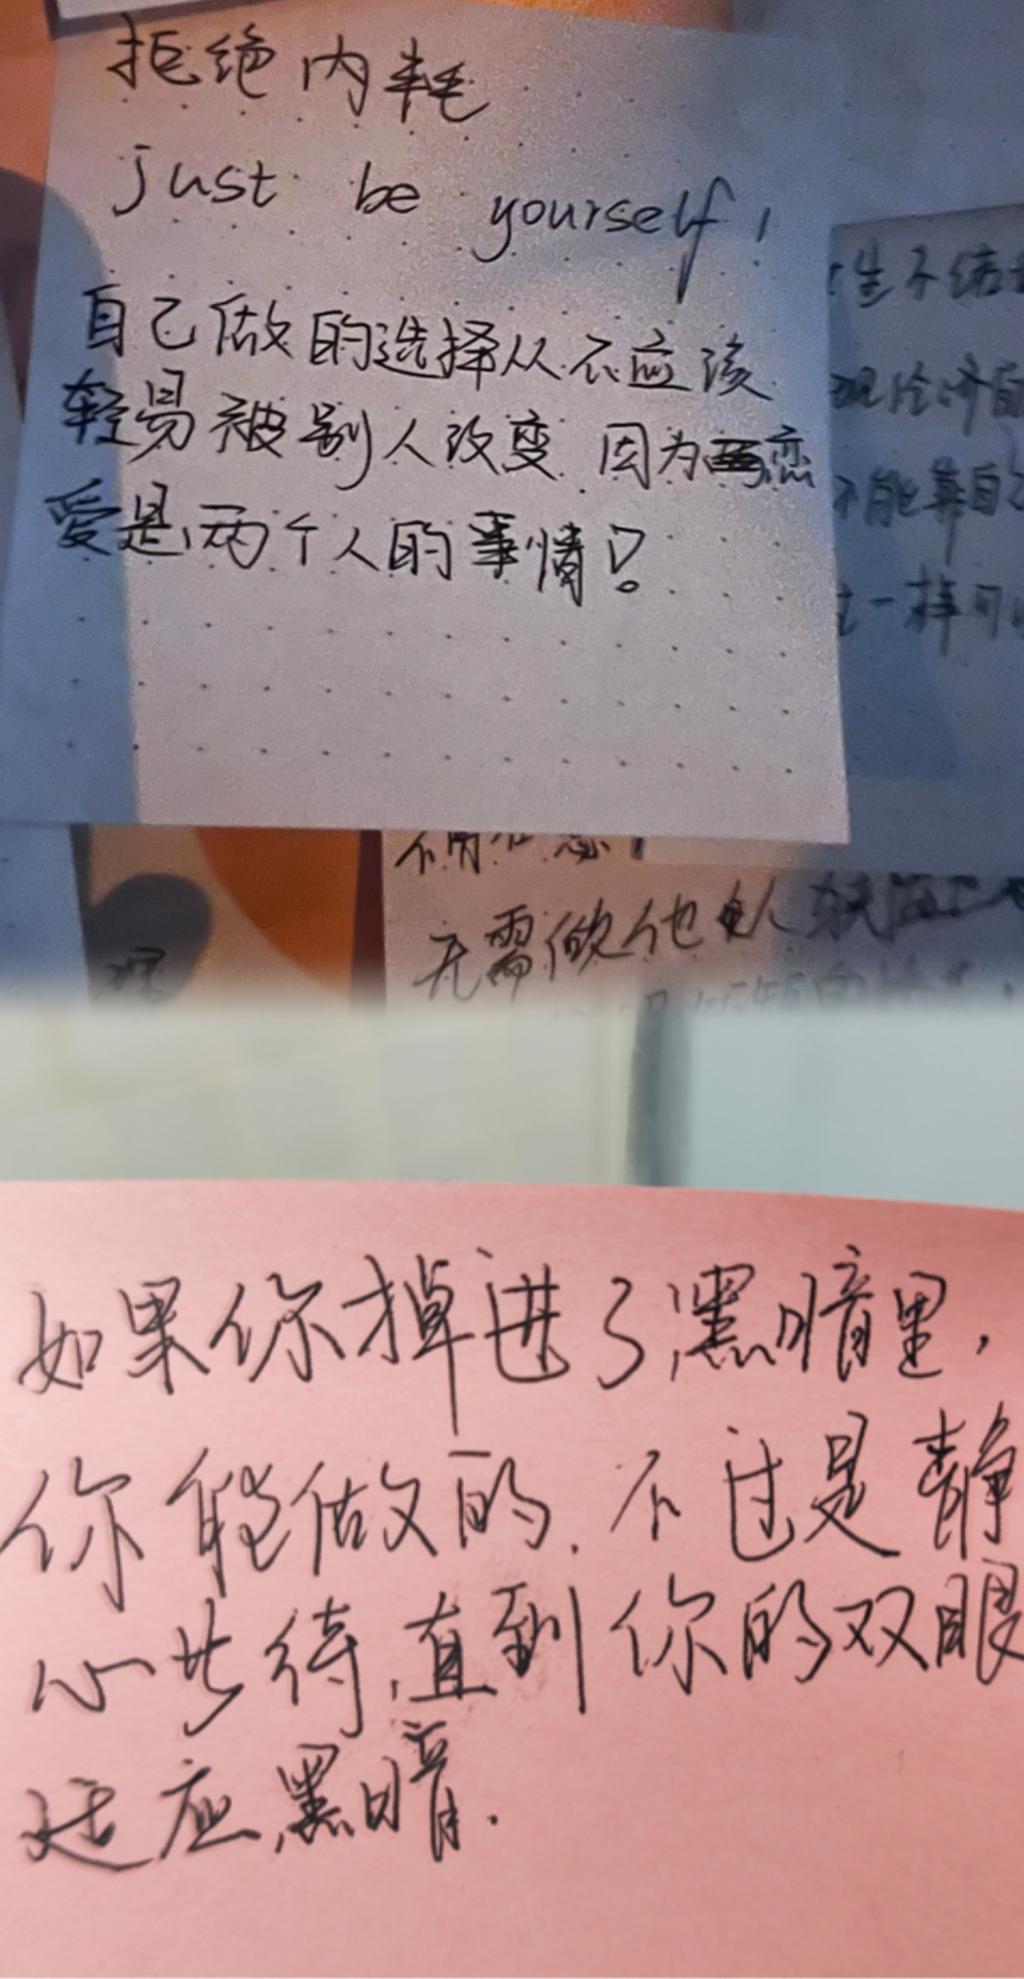 拒绝内耗
just be yourself,
自己做的选择从不应该
轻易被别人改变 因为恋
爱是两个人的事情!
生不结
不能靠自己
一样可以
无需做他人
如果你掉进了黑暗里,
你能做的.不过是静
心等待,直到你的双眼
适应黑暗.